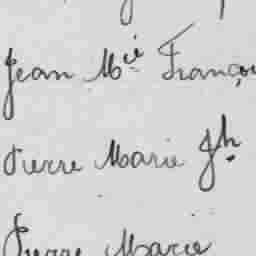 Jean Mie Françoi
Pierre Marie Jh
Pierre Marie